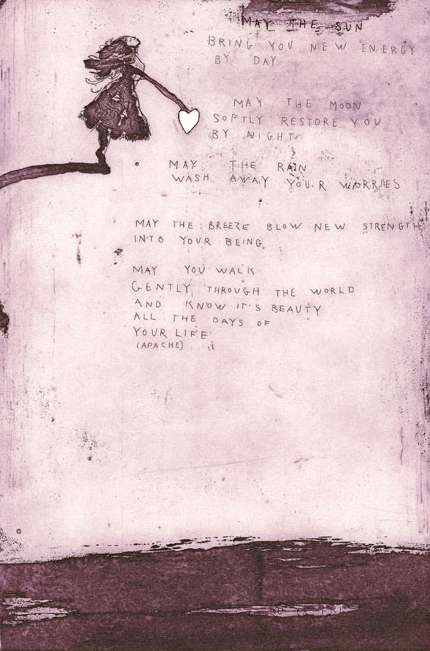 MAY THE SUN
BRING YOU NEW ENERGY
BY DAY
MAY THE MOON
SOFTLY RESTORE YOU
BY NIGHT
MAY THE RAIN
WASH AWAY YOUR WORRIES
MAY THE BREEZE BLOW NEW STRENGTH
INTO YOUR BEING
MAY YOU WALK
GENTLY THROUGH THE WORLD
AND KNOW IT'S BEAUTY
ALL THE DAYS OF
YOUR LIFE
(APACHE)